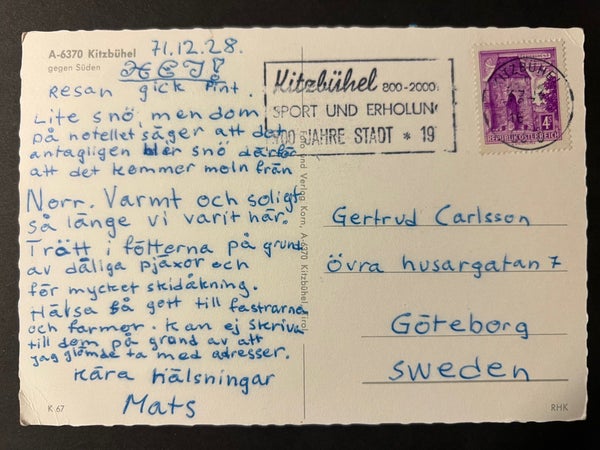 A-6370 Kitzbühel
gegen Süden
71.12.28.
HEJ!
Resan gick fint.
Lite snö, men dom
på hotellet säger att det
antagligen blir snö därför
att det kommer moln från
Norr. Varmt och soligt
så länge vi varit här.
Trätt i fötterna på grund
av dåliga pjäxor och
för mycket skidåkning.
Hälsa så gott till fastrarna
och farmor. Kan ej skriva
till dom på grund av att
jag glömde ta med adresser.
Kära hälsningar
Mats
K 67
und Verlag Korn, A-6370 Kitzbühel, Tirol
Kitzbühel 800-2000
SPORT UND ERHOLUN
700 JAHRE STADT * 19
KITZBÜHEL
4
REPUBLIK ÖSTERREICH
Gertrud Carlsson
Övra husargatan 7
Göteborg
Sweden
RHK